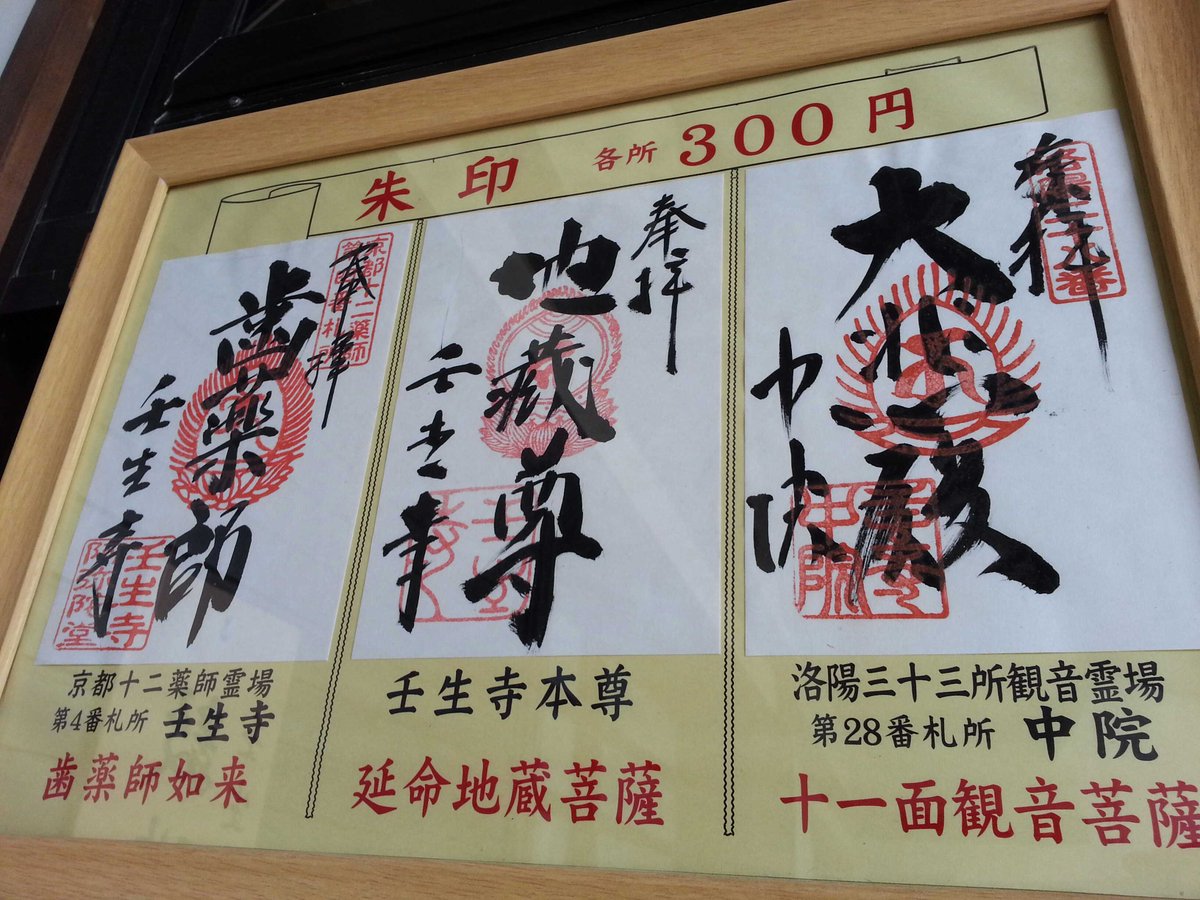 朱印 各所 300円
奉拝
大悲殿
中院
奉拝
地蔵尊
壬生寺
奉拝
歯薬師
壬生寺
壬生寺
洛陽三十三所観音霊場
第28番札所 中院
十一面観音菩薩
壬生寺本尊
延命地蔵菩薩
京都十二薬師霊場
第4番札所 壬生寺
歯薬師如来